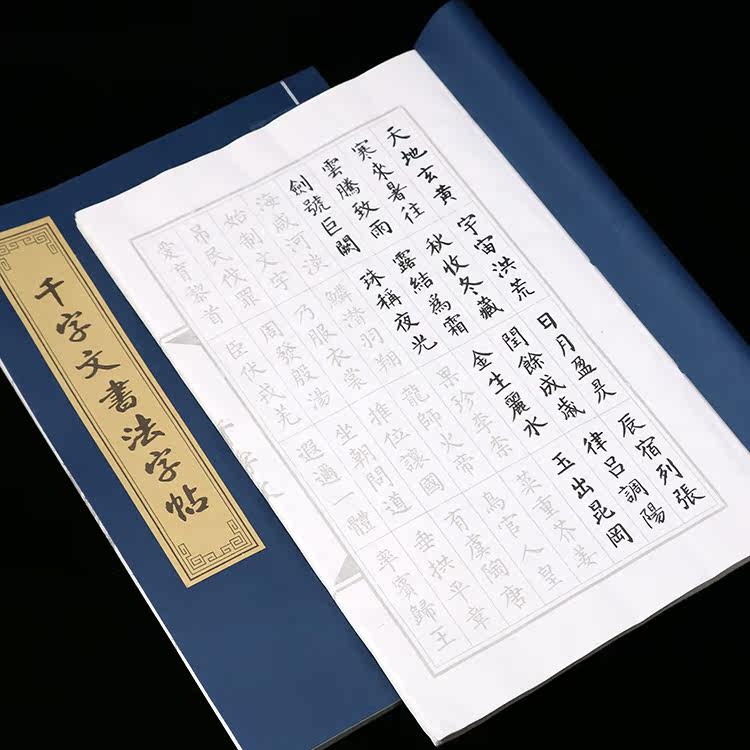 千字文書法字帖
天地玄黃 宇宙洪荒 日月盈昃 辰宿列張
寒來暑往 秋收冬藏 閏餘成歲 律呂調陽
雲騰致雨 露結為霜 金生麗水 玉出昆岡
劍號巨闕 珠稱夜光 果珍李柰 菜重芥姜
海咸河淡 鱗潛羽翔 龍師火帝 鳥官人皇
始制文字 乃服衣裳 推位讓國 有虞陶唐
吊民伐罪 周發殷湯 坐朝問道 垂拱平章
愛育黎首 臣伏戎羌 遐邇一體 率賓歸王